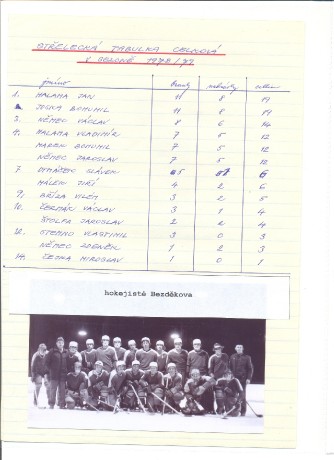 STŘELECKÁ TABULKA CELKOVÁ
V SEZONĚ 1976/77
jméno branky nahrávky celkem
1. MALAMA JAN 11 8 19
2. JOSKA BOHUMIL 11 8 19
3. NĚMEC VÁCLAV 8 6 14
4. MALAMA VLADIMÍR 7 5 12
MAREK BOHUMIL 7 5 12
NĚMEC JAROSLAV 7 5 12
7. SLÁVEK 5 6
MÁLEK JIŘÍ 4 2 6
9. BŘÍZA VILÉM 3 2 5
10. ČERMÁK VÁCLAV 3 1 4
JAROSLAV 2 2 4
12. VLASTIMIL 3 0 3
NĚMEC ZDENĚK 1 2 3
14. MIROSLAV 1 0 1
hokejisté Bezděkova